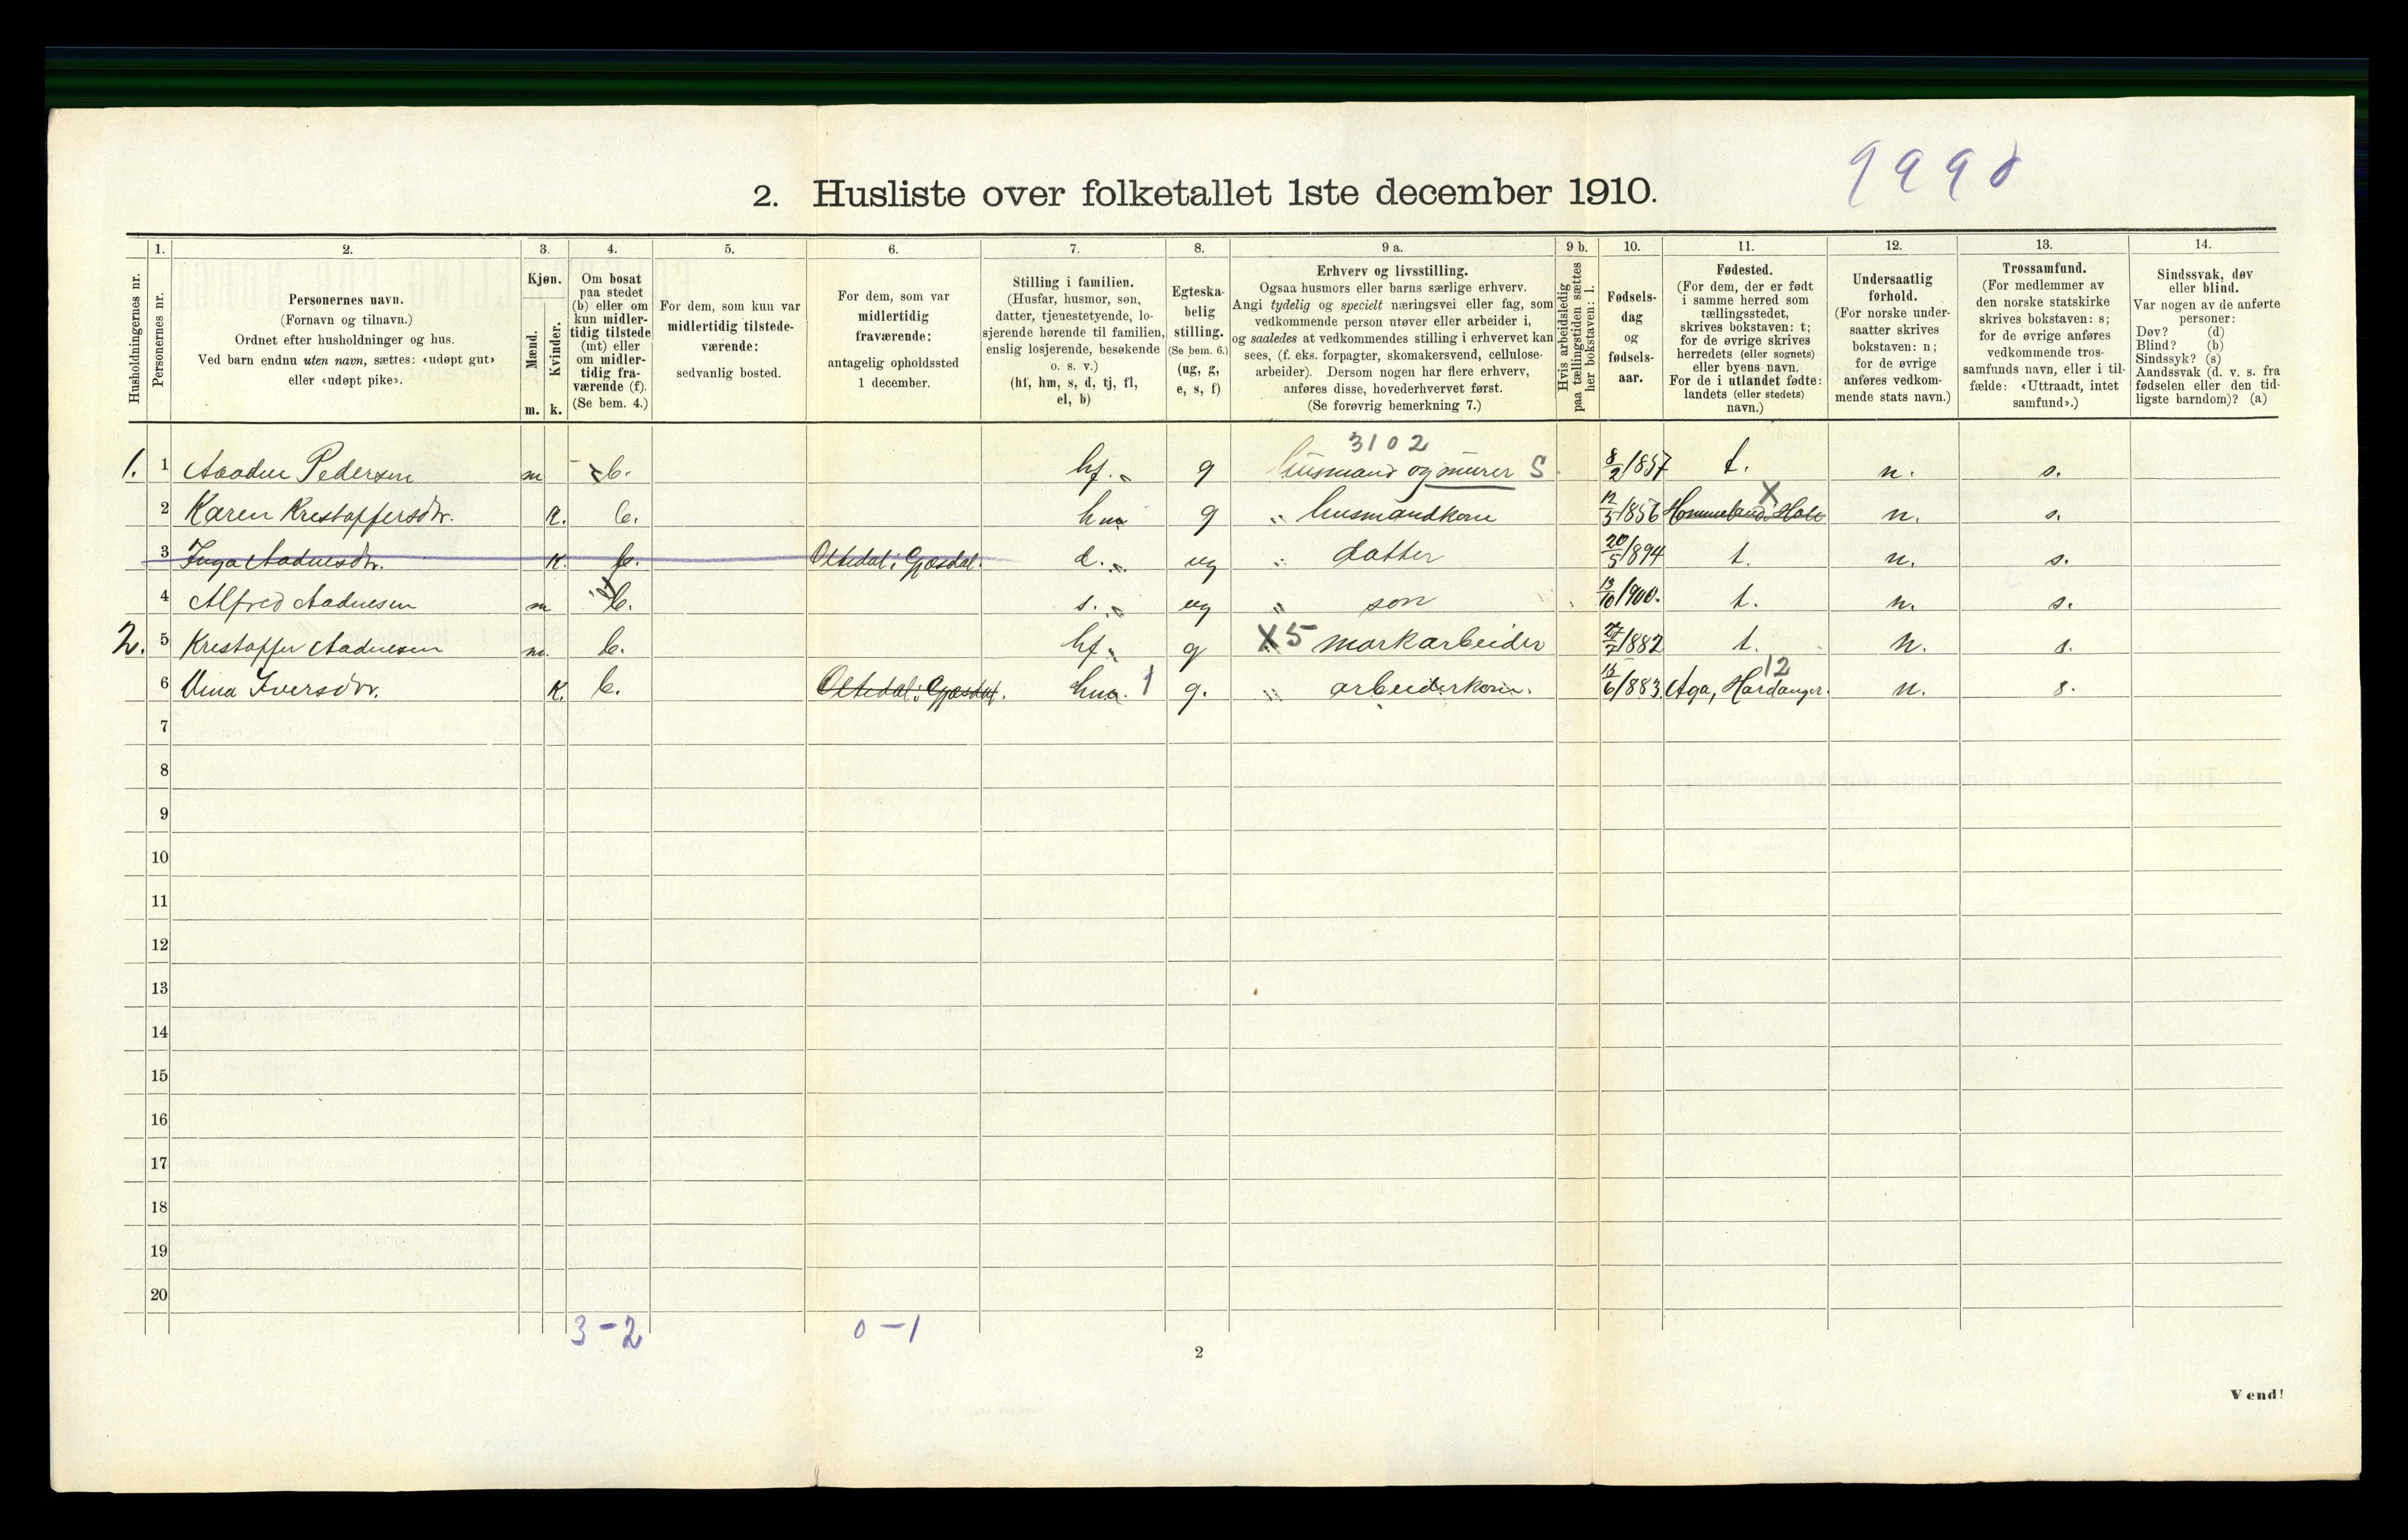 2. Husliste over folketallet 1ste december 1910.
1. 2. 3. 4. 5. 6. 7. 8. 9 a. 9 b. 10. 11. 12. 13. 14.
Husholdningernes nr.
Personernes nr.
Personernes navn.
(Fornavn og tilnavn.)
Ordnet efter husholdninger og hus.
Ved barn endnu uten navn, sættes: «udøpt gut»
eller «udøpt pike».
Kjøn.
Mænd.
Kvinder.
m. k.
Om bosat
paa stedet
(b) eller om
kun midler-
tidig tilstede
(mt) eller
om midler-
tidig fra-
værende (f).
(Se bem. 4.)
For dem, som kun var
midlertidig tilstede-
værende:
sedvanlig bosted.
For dem, som var
midlertidig
fraværende:
antagelig opholdssted
1 december.
Stilling i familien.
(Husfar, husmor, søn,
datter, tjenestetyende, lo-
sjerende hørende til familien,
enslig losjerende, besøkende
o. s. v.)
(hf, hm, s, d, tj, fl,
el, b)
Egteska-
belig
stilling.
(Se bem. 6.)
(ug, g,
e, s, f)
Erhverv og livsstilling.
Ogsaa husmors eller barns særlige erhverv.
Angi tydelig og specielt næringsvei eller fag, som
vedkommende person utøver eller arbeider i,
og saaledes at vedkommendes stilling i erhvervet kan
sees, (f. eks. forpagter, skomakersvend, cellulose-
arbeider). Dersom nogen har flere erhverv,
anføres disse, hovederhvervet først.
(Se forøvrig bemerkning 7.)
Hvis arbeidsledig
paa tællingstiden sættes
her bokstaven: l.
Fødsels-
dag
og
fødsels-
aar.
Fødested.
(For dem, der er født
i samme herred som
tællingsstedet,
skrives bokstaven: t;
for de øvrige skrives
herredets (eller sognets)
eller byens navn.
For de i utlandet fødte:
landets (eller stedets)
navn.)
Undersaatlig
forhold.
(For norske under-
saatter skrives
bokstaven: n;
for de øvrige
anføres vedkom-
mende stats navn.)
Trossamfund.
(For medlemmer av
den norske statskirke
skrives bokstaven: s;
for de øvrige anføres
vedkommende tros-
samfunds navn, eller i til-
fælde: «Uttraadt, intet
samfund».)
Sindssvak, døv
eller blind.
Var nogen av de anførte
personer:
Døv? (d)
Blind? (b)
Sindssyk? (s)
Aandssvak (d. v. s. fra
fødselen eller den tid-
ligste barndom)? (a)
3102
1. 1 Aadne Pedersen m b. hf. g husmand og murer S 8/2 1857 t. n. s.
2 Karen Krestoffersdtr. k. b. hm g " husmandkone 12/5 1856 Hommeland, Hole X n. s.
3 Inga Aadnesdtr. k. b. Oltedal i Gjesdal. d. ug " datter 20/5 1894 t. n. s.
4 Alfred Aadnesen m b. s. ug " søn 13/10 1900. t. n. s.
2. 5 Krestoffer Aadnesen m. b. hf. g X5 markarbeider 27/7 1882 t. n. s.
12
6 k. b. Oltedal i Gjesdal. hm. 1 g. " arbeiderkone. 15/6 1883. Aga, Hardanger. n. s.
7
8
9
10
11
12
13
14
15
16
17
18
19
20
3-2 0-1
2
Vend!